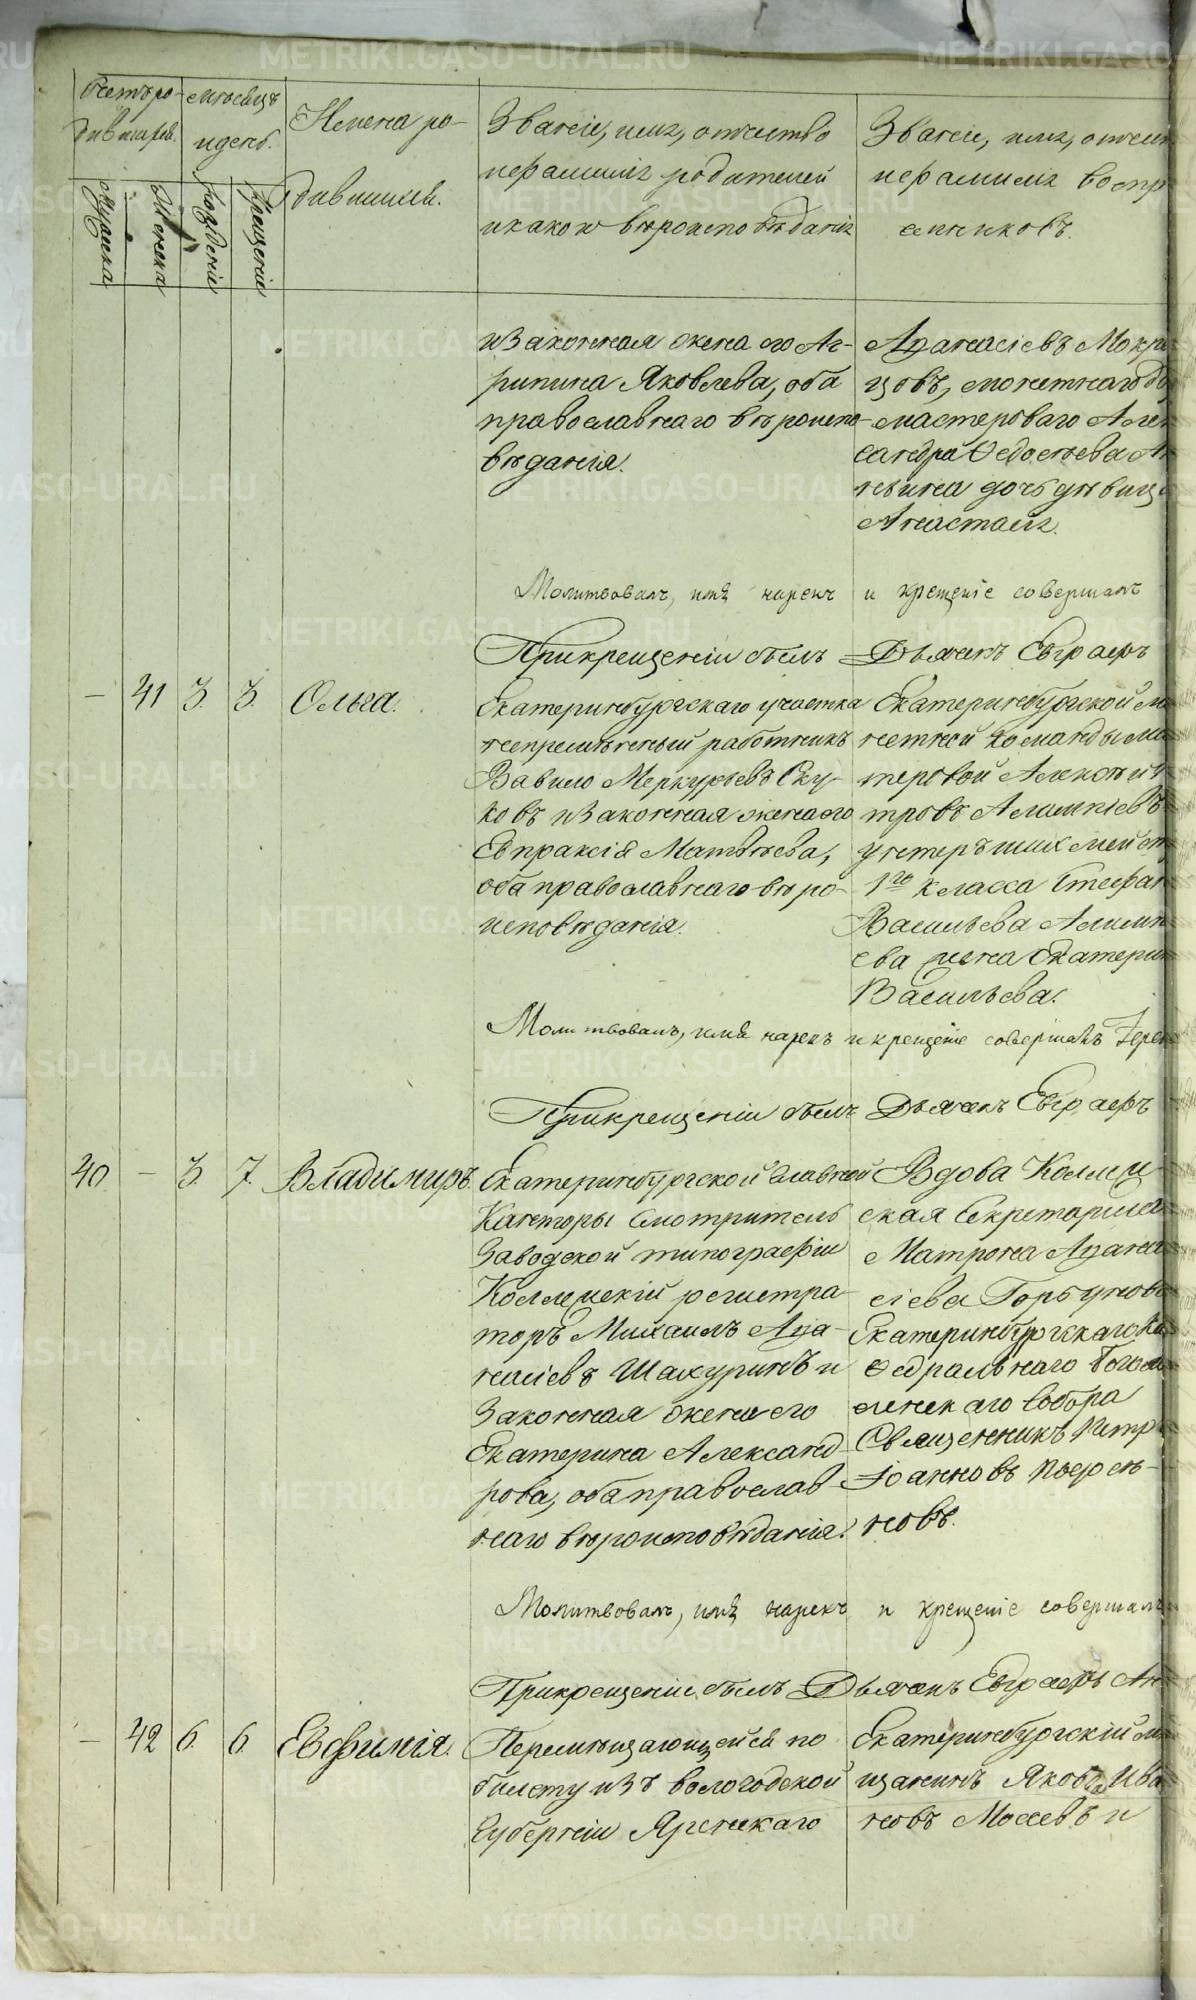 Счетъ ро-
дившихся.
Мѣсяцъ
и день.
Мужеска
Женска
Рожденія
Крещенія
Имена ро-
дившихся.
Званіе, имя, отчество
и фамилія родителей
и какого вѣроисповѣданія
Званіе, имя, отчест
и фамилія воспр
емниковъ.
и законная жена его Аг-
рипина Яковлева, оба
православнаго вѣроиспо-
вѣданія.
Аѳанасіевъ Мокри
цовъ, монетнаго дво
мастероваго Алек
сандра Ѳедосѣева
дочь дѣвица
Анастасія.
Молитвовалъ, имя нарекъ и крещеніе совершалъ
При крещеніи былъ Дьячекъ Евграфъ
— 41 3. 3. Ольга.
Екатеринбургскаго участка
непремѣнный работникъ
Вавило Меркурьевъ Ску-
ковъ и законная жена его
Евпраксія Матвѣева,
оба православнаго вѣро-
исповѣданія.
Екатеринбургской мо
нетной команды мас
теровой Алексѣй П
тровъ Алимпіевъ
унтеръ шихмейст
1го класса Стефан
Васильева Алимп
ева жена Екатерин
Васильева.
Молитвовалъ, имя нарекъ и крещеніе совершалъ Іерей
При крещеніи былъ Дьячекъ Евграфъ
40. — 3. 7. Владимиръ.
Екатеринбургской Главной
Конторы Смотритель
Заводской типографіи
Коллежскій регистра-
торъ Михаилъ Аѳа-
насіевъ Шакуринъ и
законная жена его
Екатерина Александ-
рова, оба православ-
наго вѣроисповѣданія.
Вдова Коллеж
ская Секретарша
Матрона Аѳана
сіева Горбунова
Екатеринбургскаго Ка
ѳедральнаго Богояв
ленскаго Собора
Священникъ Петр
Іоанновъ
новъ.
Молитвовалъ, имя нарекъ и крещеніе совершалъ
При крещеніи былъ Дьячекъ Евграфъ Ан
— 42 6. 6. Евфимія.
Перемѣщающейся по
билету изъ Вологодской
Губерніи Яренскаго
Екатеринбургскій мѣ
щанинъ Яковъ Ива
новъ Мосеевъ и
METRIKI.GASO-URAL.RU